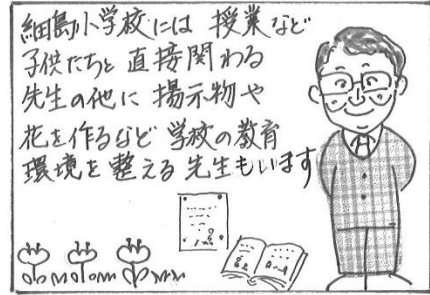 細島小学校には 授業など
子供たちと 直接関わる
先生の他に 掲示物や
花を作るなど 学校の教育
環境を 整える 先生もいます